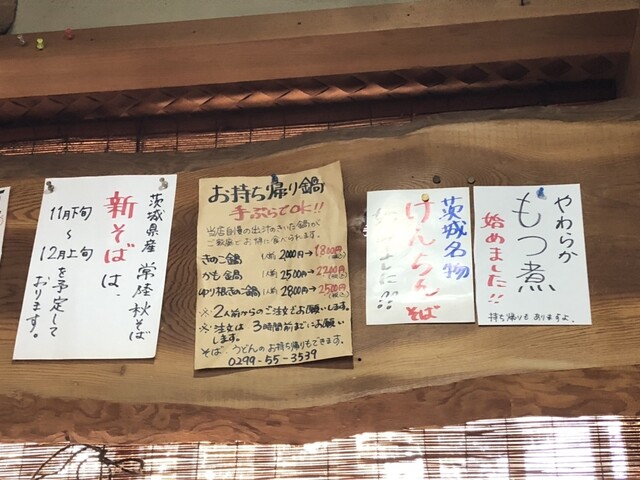 茨城県産 常陸秋そば
新そばは、
11月下旬
〜
12月上旬
を予定して
おります。
お持ち帰り鍋
手ぶらでOK!!
当店自慢の出汁のきいた鍋が
ご家庭でお持に食べられます。
きのこ鍋 (1人前) 2000円→1800円(税込)
かも鍋 (1人前) 2500円→2200円(税込)
ゆり根きのこ鍋 (1人前) 2800円→2500円(税込)
※2人前からのご注文でお願いします。
※注文は3時間前までにお願い
します。
そば、うどんのお持ち帰りもできます。
0299-55-3539
茨城名物
けんちんそば
始めました!!
やわらか
もつ煮
始めました!!
持ち帰りもありますよ。